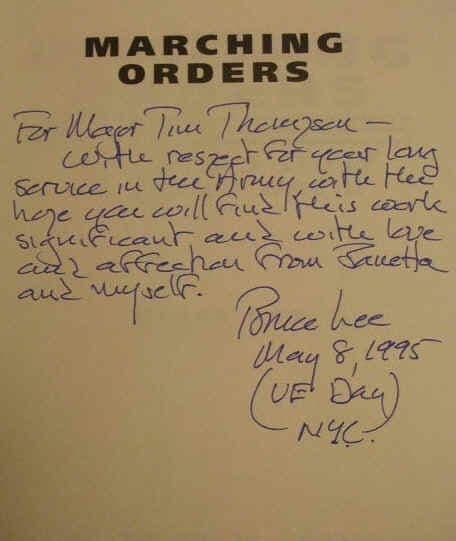 MARCHING
ORDERS
For Major Tim Thompson –
with respect for your long
service in the Army with the
hope you will find this work
significant and with love
and affection from Janetta
and myself.
Bruce Lee
May 8, 1995
(VE Day)
NYC.